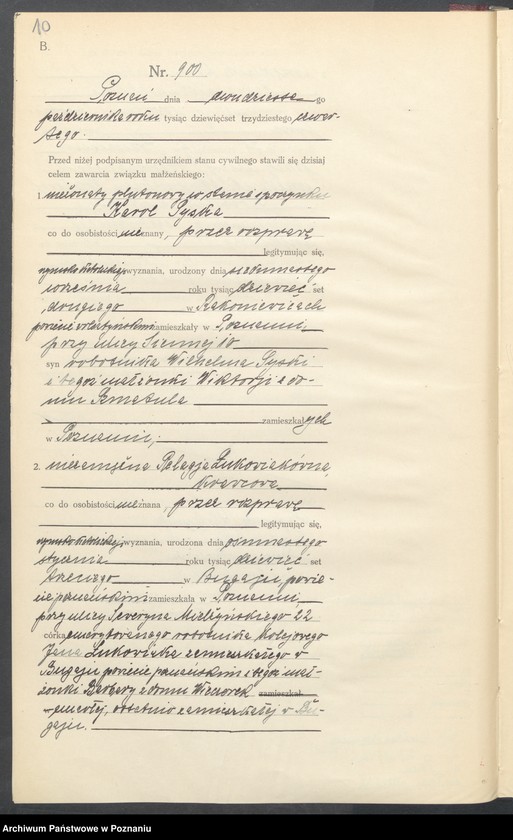 10
B.
Nr. 900
Poznań dnia dwudziestego
października roku tysiąc dziewięćset trzydziestego czwar-
tego.
Przed niżej podpisanym urzędnikiem stanu cywilnego stawili się dzisiaj
celem zawarcia związku małżeńskiego:
1. nieżonaty plutonowy w stanie spoczynku
Karol Pyska
co do osobistości nieznany, przez rozprawę
legitymując się,
rzymsko katolickiego wyznania, urodzony dnia siedemnastego
września roku tysiąc dziewięć set
drugiego w Rakoniewicach
powiecie wolsztyńskim zamieszkały w Poznaniu
przy ulicy Siennej 10
syn robotnika Wilhelma Pyski
i tegoż małżonki Wiktorji z do-
mu
zamieszkałych
w Poznaniu,
2. niezamężna Pelagja Łukowiakówna,
co do osobistości nieznana, przez rozprawę
legitymując się,
rzymsko katolickiej wyznania, urodzona dnia ósmnastego
stycznia roku tysiąc dziewięć set
trzeciego w Bugaju, powie-
cie zamieszkała w Poznaniu
przy ulicy Seweryna Mielżyńskiego 22
córka emerytowanego robotnika kolejowego
Jana Łukowiaka zamieszkałego w
Bugaju powiecie i tegoż mał-
żonki Barbary z domu Wieczorek zamieszkał.
zmarłej, ostatnio zamieszkałej w Bu-
gaju.
Archiwum Państwowe w Poznaniu